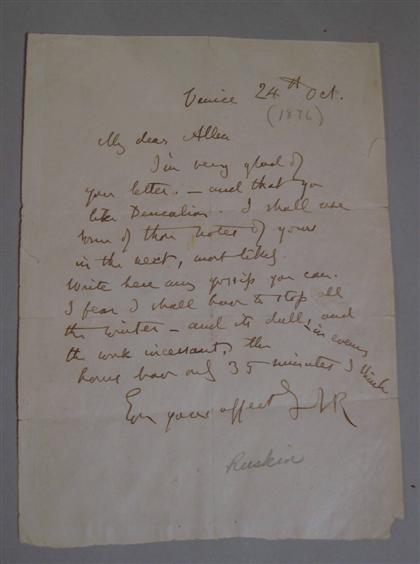 Venice 24th Oct.
(1876)
My dear Allen
I'm very glad of
your letter. — and that you
like Deucalion. I shall use
some of those notes of yours
in the next, most likely.
Write here any gossip you can.
I fear I shall have to stop all
the winter — and its dull, and
the work incessant, the
hours have only 35 minutes I think
in evening
Ever your affect JR
Ruskin